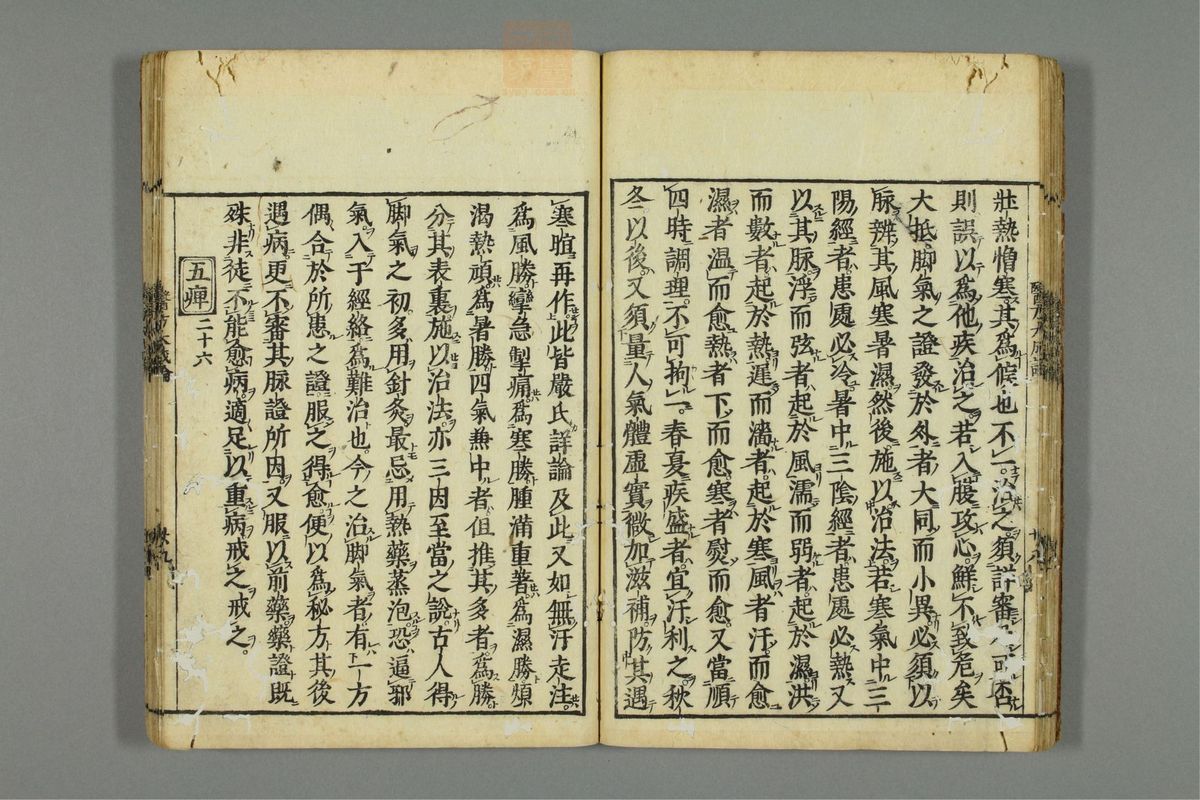 壯熱憎寒其爲候也不一治之須詳審不可否
則誤以爲他疾治之若入腹攻心鮮不致危矣
大抵脚氣之證發於外者大同而小異必須以
脉辨其風寒暑濕然後施以治法若寒氣中三
陽經者患處必冷暑中三陰經者患處必熱又
以其脉浮而弦者起於風濡而弱者起於濕洪
而數者起於熱遲而濇者起於寒風者汗而愈
濕者温而愈熱者下而愈寒者熨而愈又當順
四時調理不可拘一春夏疾盛者宜汗利之秋
冬以後又須量人氣體虛實微加滋補防其遇
寒暄再作此皆嚴氏詳論及此又如無汗走注
爲風勝攣急掣痛爲寒勝腫滿重著爲濕勝煩
渴熱頑爲暑勝四氣兼中者但推其多者爲勝
分其表裏施以治法亦三因至當之說古人得
脚氣之初多用針灸最忌用熱藥蒸泡恐逼邪
氣入于經絡爲難治也今之治脚氣者有一方
偶合於所患之證服之得愈便以爲秘方其後
遇病更不審其脉證所因又服以前藥藥證既
殊非徒不能愈病適足以重病戒之戒之
五痺 二十六